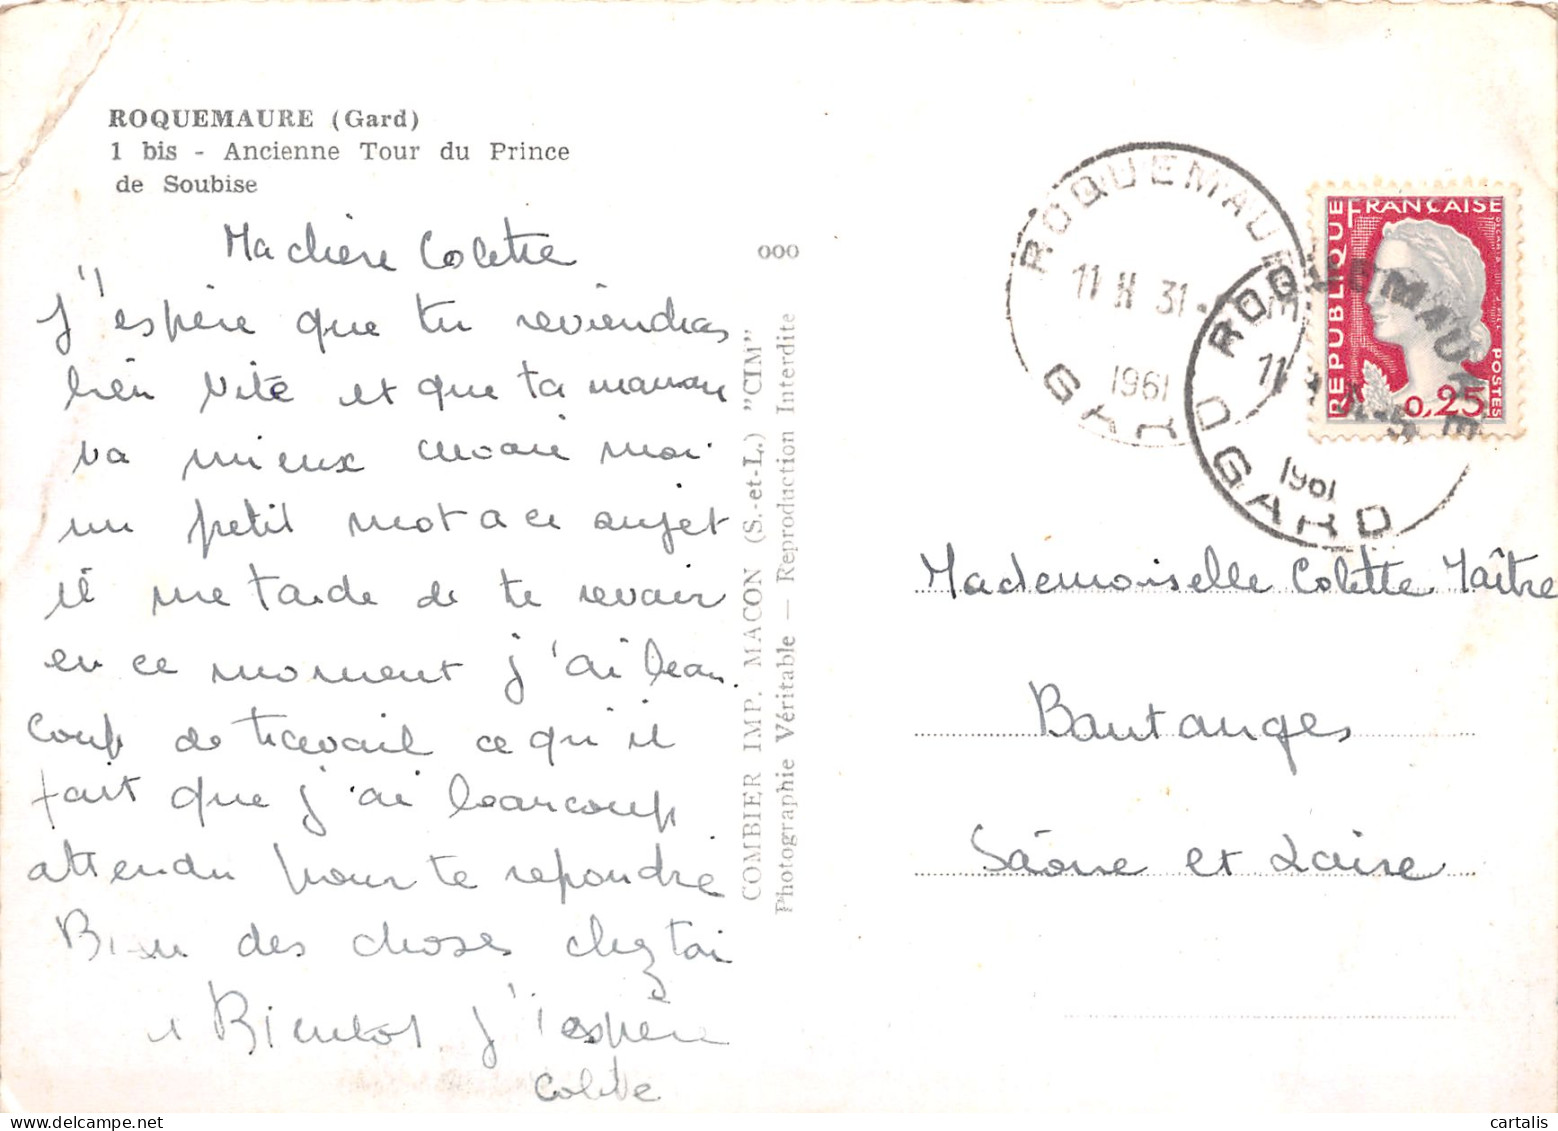 ROQUEMAURE (Gard)
1 bis - Ancienne Tour du Prince
de Soubise
Ma chère Colette
J'espère que tu reviendras
bien vite et que ta maman
va mieux envoie moi
un petit mot a ce sujet
il me tarde de te revoir
en ce moment j'ai beau
coup de travail ce qui
fait que j'ai beaucoup
attendu pour te repondre
Bien des choses chez toi
a Bientot j'espère
Colette
000
COMBIER IMP. MACON (S.-et-L.) "CIM"
Photographie Véritable — Reproduction Interdite
ROQUEMAURE
11 H 31-
1961
GARD
ROQUEMAURE
11
1961
GARD
REPUBLIQUE FRANÇAISE
POSTES
0,25
Mademoiselle Colette Maître
Bautanges
Sâone et Loire
cartalis